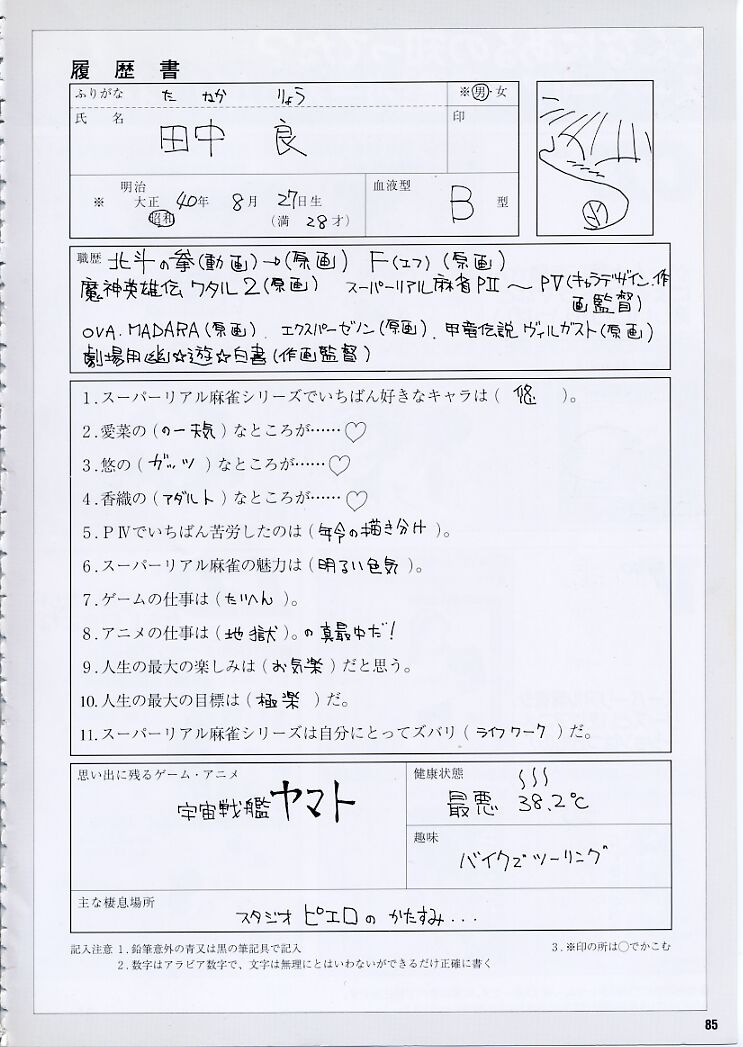 履歴書
ふりがな た なか りょう ※男・女
氏 名 田中 良 印
明治
※ 大正 40年 8月 27日生 血液型 B 型
昭和 (満 28才)
職歴 北斗の拳(動画)→(原画) F(エフ)(原画)
魔神英雄伝ワタル2(原画) スーパーリアル麻雀PⅡ〜PⅤ(キャラデザイン、作
画監督)
OVA.MADARA(原画)、エクスパーゼノン(原画)、甲竜伝説ヴィルガスト(原画)
劇場用幽☆遊☆白書(作画監督)
1.スーパーリアル麻雀シリーズでいちばん好きなキャラは( 悠 )。
2.愛菜の(のー天気)なところが……♡
3.悠の(ガッツ)なところが……♡
4.香織の(アダルト)なところが……♡
5.PⅣでいちばん苦労したのは(年令の描き分け)。
6.スーパーリアル麻雀の魅力は(明るい色気)。
7.ゲームの仕事は(たいへん)。
8.アニメの仕事は(地獄)。の真最中だ!
9.人生の最大の楽しみは(お気楽)だと思う。
10.人生の最大の目標は(極楽)だ。
11.スーパーリアル麻雀シリーズは自分にとってズバリ(ライフワーク)だ。
思い出に残るゲーム・アニメ
宇宙戦艦ヤマト
健康状態
最悪 38.2℃
趣味
バイクでツーリング
主な棲息場所
スタジオピエロのかたすみ...
記入注意 1.鉛筆意外の青又は黒の筆記具で記入 3.※印の所は○でかこむ
2.数字はアラビア数字で、文字は無理にとはいわないができるだけ正確に書く
85